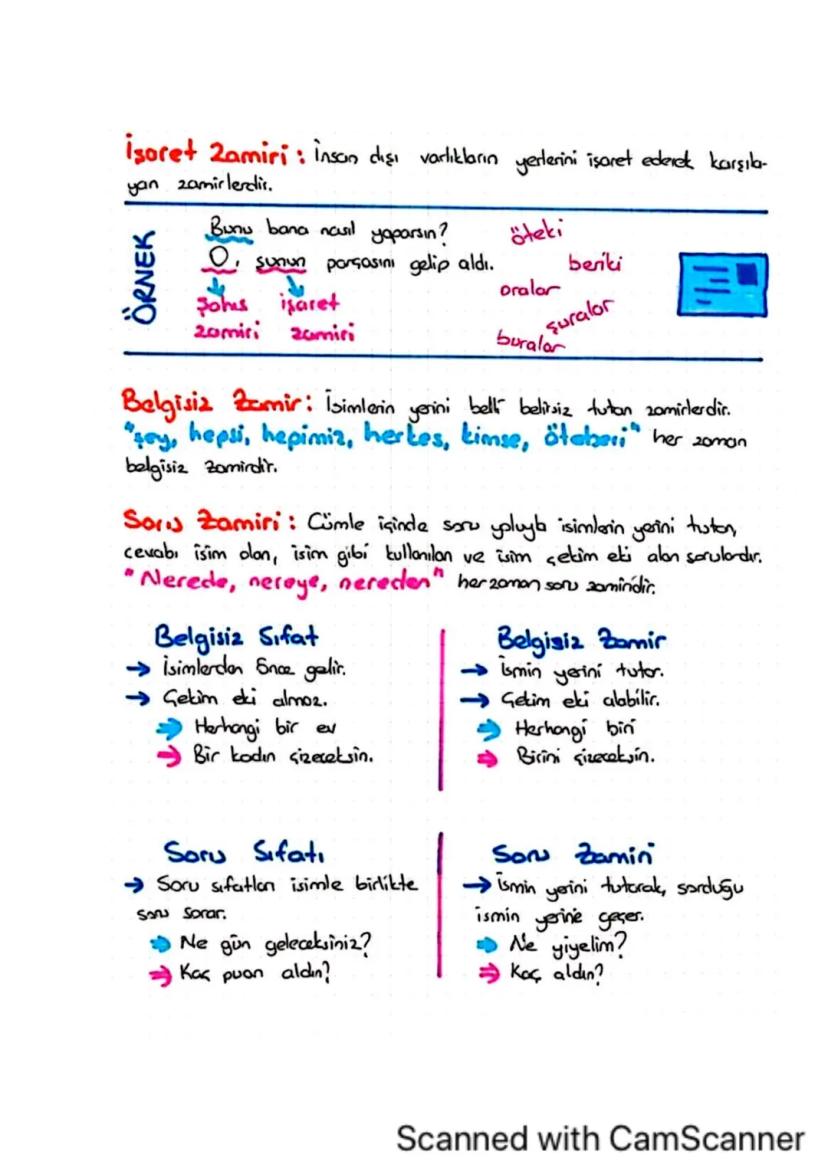 İşaret Zamiri: İnsan dışı varlıkların yerlerini işaret ederek karşıla-
yan zamirlerdir.
ÖRNEK
Bunu bana nasıl yaparsın?
O, şunun parçasını gelip aldı.
şahıs zamiri
işaret zamiri
öteki
beriki
oralar
şuralar
buralar
Belgisiz Zamir: İsimlerin yerini belli belirsiz tutan zamirlerdir.
"şey, hepsi, hepimiz, herkes, kimse, öteberi" her zaman
belgisiz zamirdir.
Soru Zamiri: Cümle içinde soru yoluyla isimlerin yerini tutan,
cevabı isim olan, isim gibi kullanılan ve isim çekim eki alan sorulardır.
"Nerede, nereye, nereden" her zaman soru zamiridir.
Belgisiz Sıfat
→ İsimlerden önce gelir.
→ Çekim eki almaz.
⇒ Herhangi bir ev
⇒ Bir kadın çizeceksin.
Belgisiz Zamir
→ İsmin yerini tutar.
→ Çekim eki alabilir.
⇒ Herhangi biri
⇒ Birini çizeceksin.
Soru Sıfatı
→ Soru sıfatları isimle birlikte
soru sorar.
⇒ Ne gün geleceksiniz?
⇒ Kaç puan aldın?
Soru Zamiri
→ İsmin yerini tutarak, sorduğu
ismin yerine geçer.
⇒ Ne yiyelim?
⇒ Kaç aldın?
Scanned with CamScanner